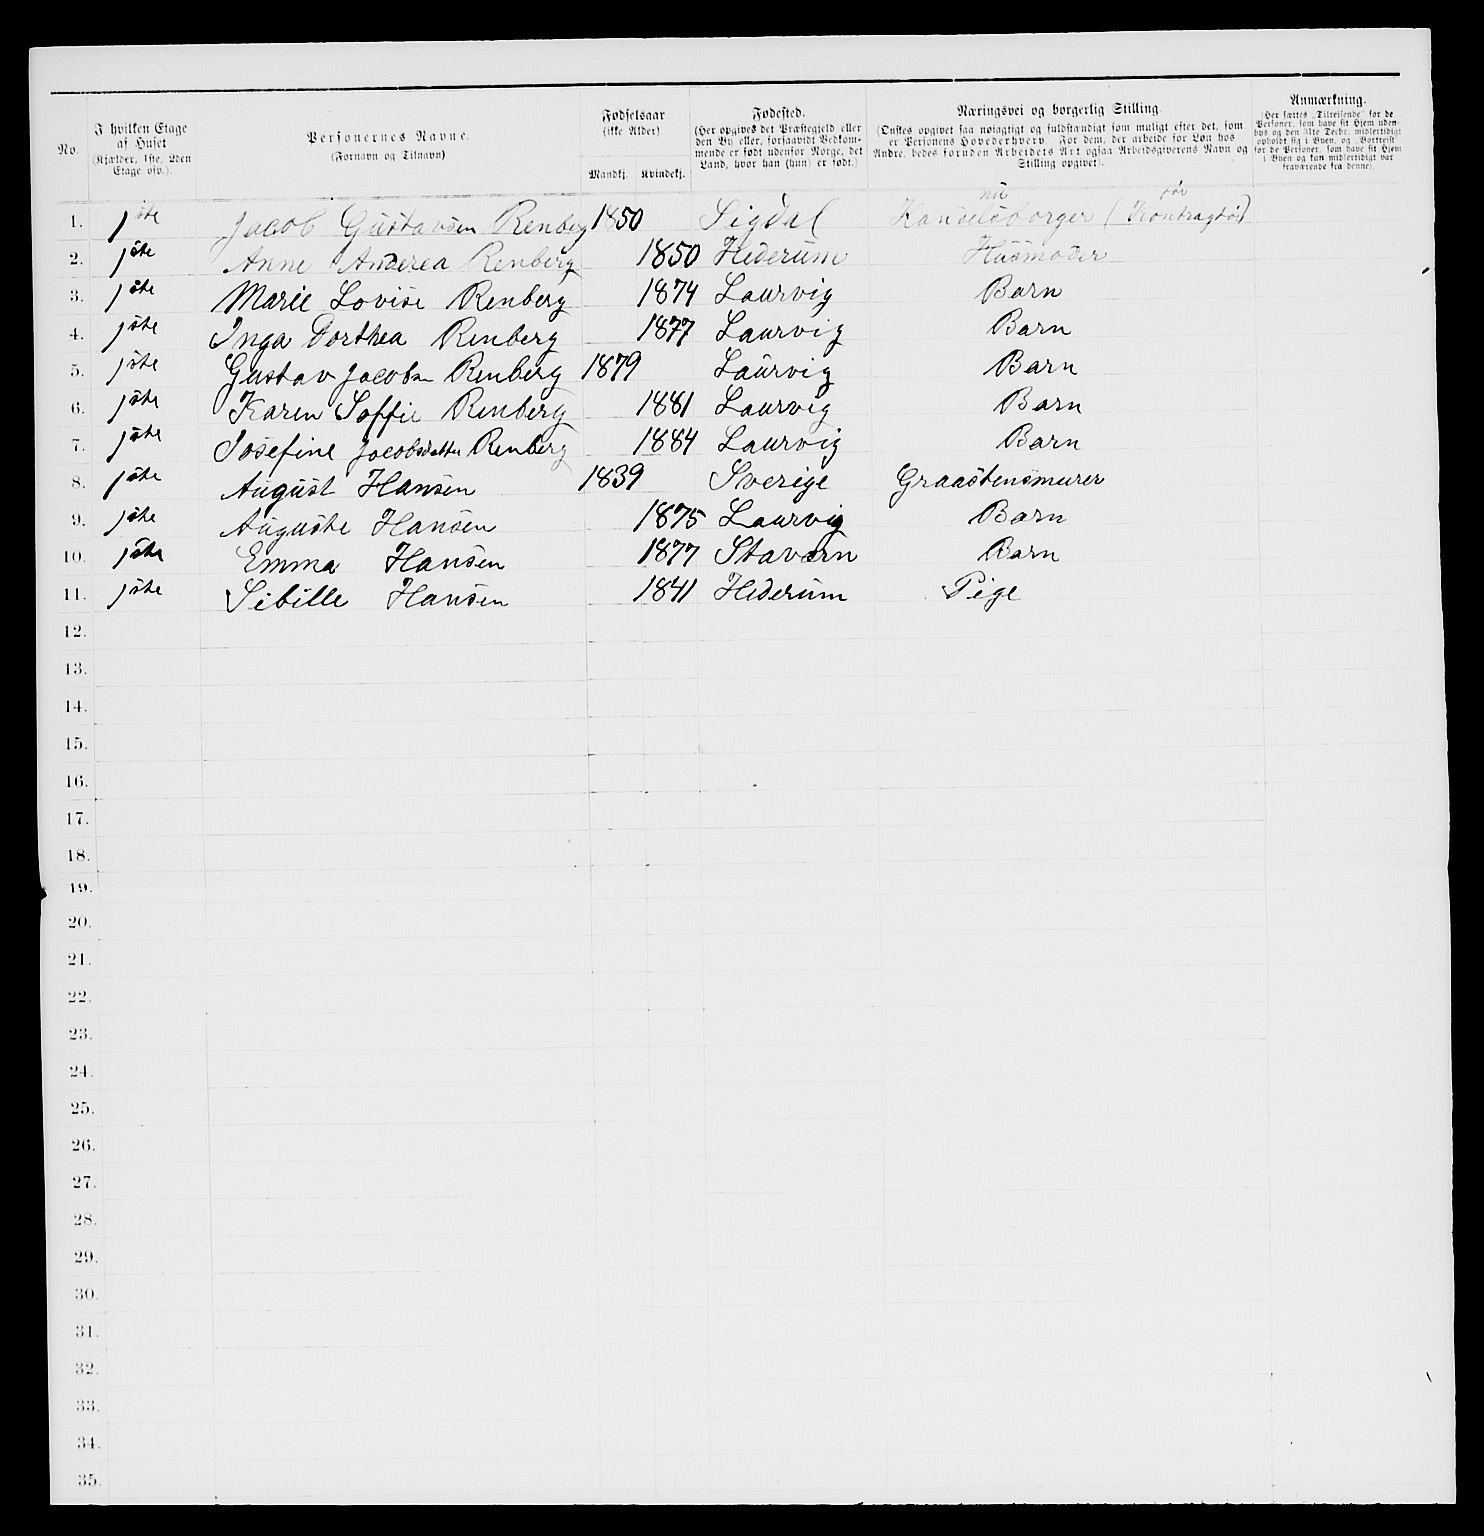 No.
I hvilken Etage af Huset (Kjælder, 1ste, 2den Etage osv.).
Personernes Navne. (Fornavn og Tilnavn)
Fødselsaar (ikke Alder)
Mandkj. Kvindekj.
Fødested. (Her opgives det Præstegjeld eller den By eller, forsaavidt Vedkommende er født udenfor Norge, det Land, hvor han (hun) er født.)
Næringsvei og borgerlig Stilling. (Ønskes opgivet saa nøiagtigt og fuldstændigt som muligt efter det, som er Personens Hovederhverv. For dem, der arbeide for Løn hos Andre, bedes foruden Arbeidets Art ogsaa Arbeidsgiverens Navn og Stilling opgivet).
Anmærkning. (Her sættes „Tilreisende“ for de Personer, som have sit Hjem udenbys og den 31te Decbr. midlertidigt opholdt sig i Byen, og „Bortreist“ for de Personer, som have sit Hjem i Byen og kun midlertidigt var fraværende fra denne)
nu før
1. 1ste Jacob Gustavsen Renberg 1850 Sigdal Handelsborger (Kontragtør)
2. 1ste Anne Anderea Renberg 1850 Hederum Husmoder
3. 1ste Marie Lovise Renberg 1874 Laurvig Barn
4. 1ste Inga Dorthea Renberg 1877 Laurvig Barn
5. 1ste Gustav Jacobsn Renberg 1879 Laurvig Barn
6. 1ste Karen Soffie Renberg 1881 Laurvig Barn
7. 1ste Josefine Jacobsdatter Renberg 1884 Laurvig Barn
8. 1ste August Hansen 1839 Sverige Graastensmurer
9. 1ste Auguste Hansen 1875 Laurvig Barn
10. 1ste Emma Hansen 1877 Stavern Barn
11. 1ste Sibille Hansen 1841 Hederum Pige
12.
13.
14.
15.
16.
17.
18.
19.
20.
21.
22.
23.
24.
25.
26.
27.
28.
29.
30.
31.
32.
33.
34.
35.